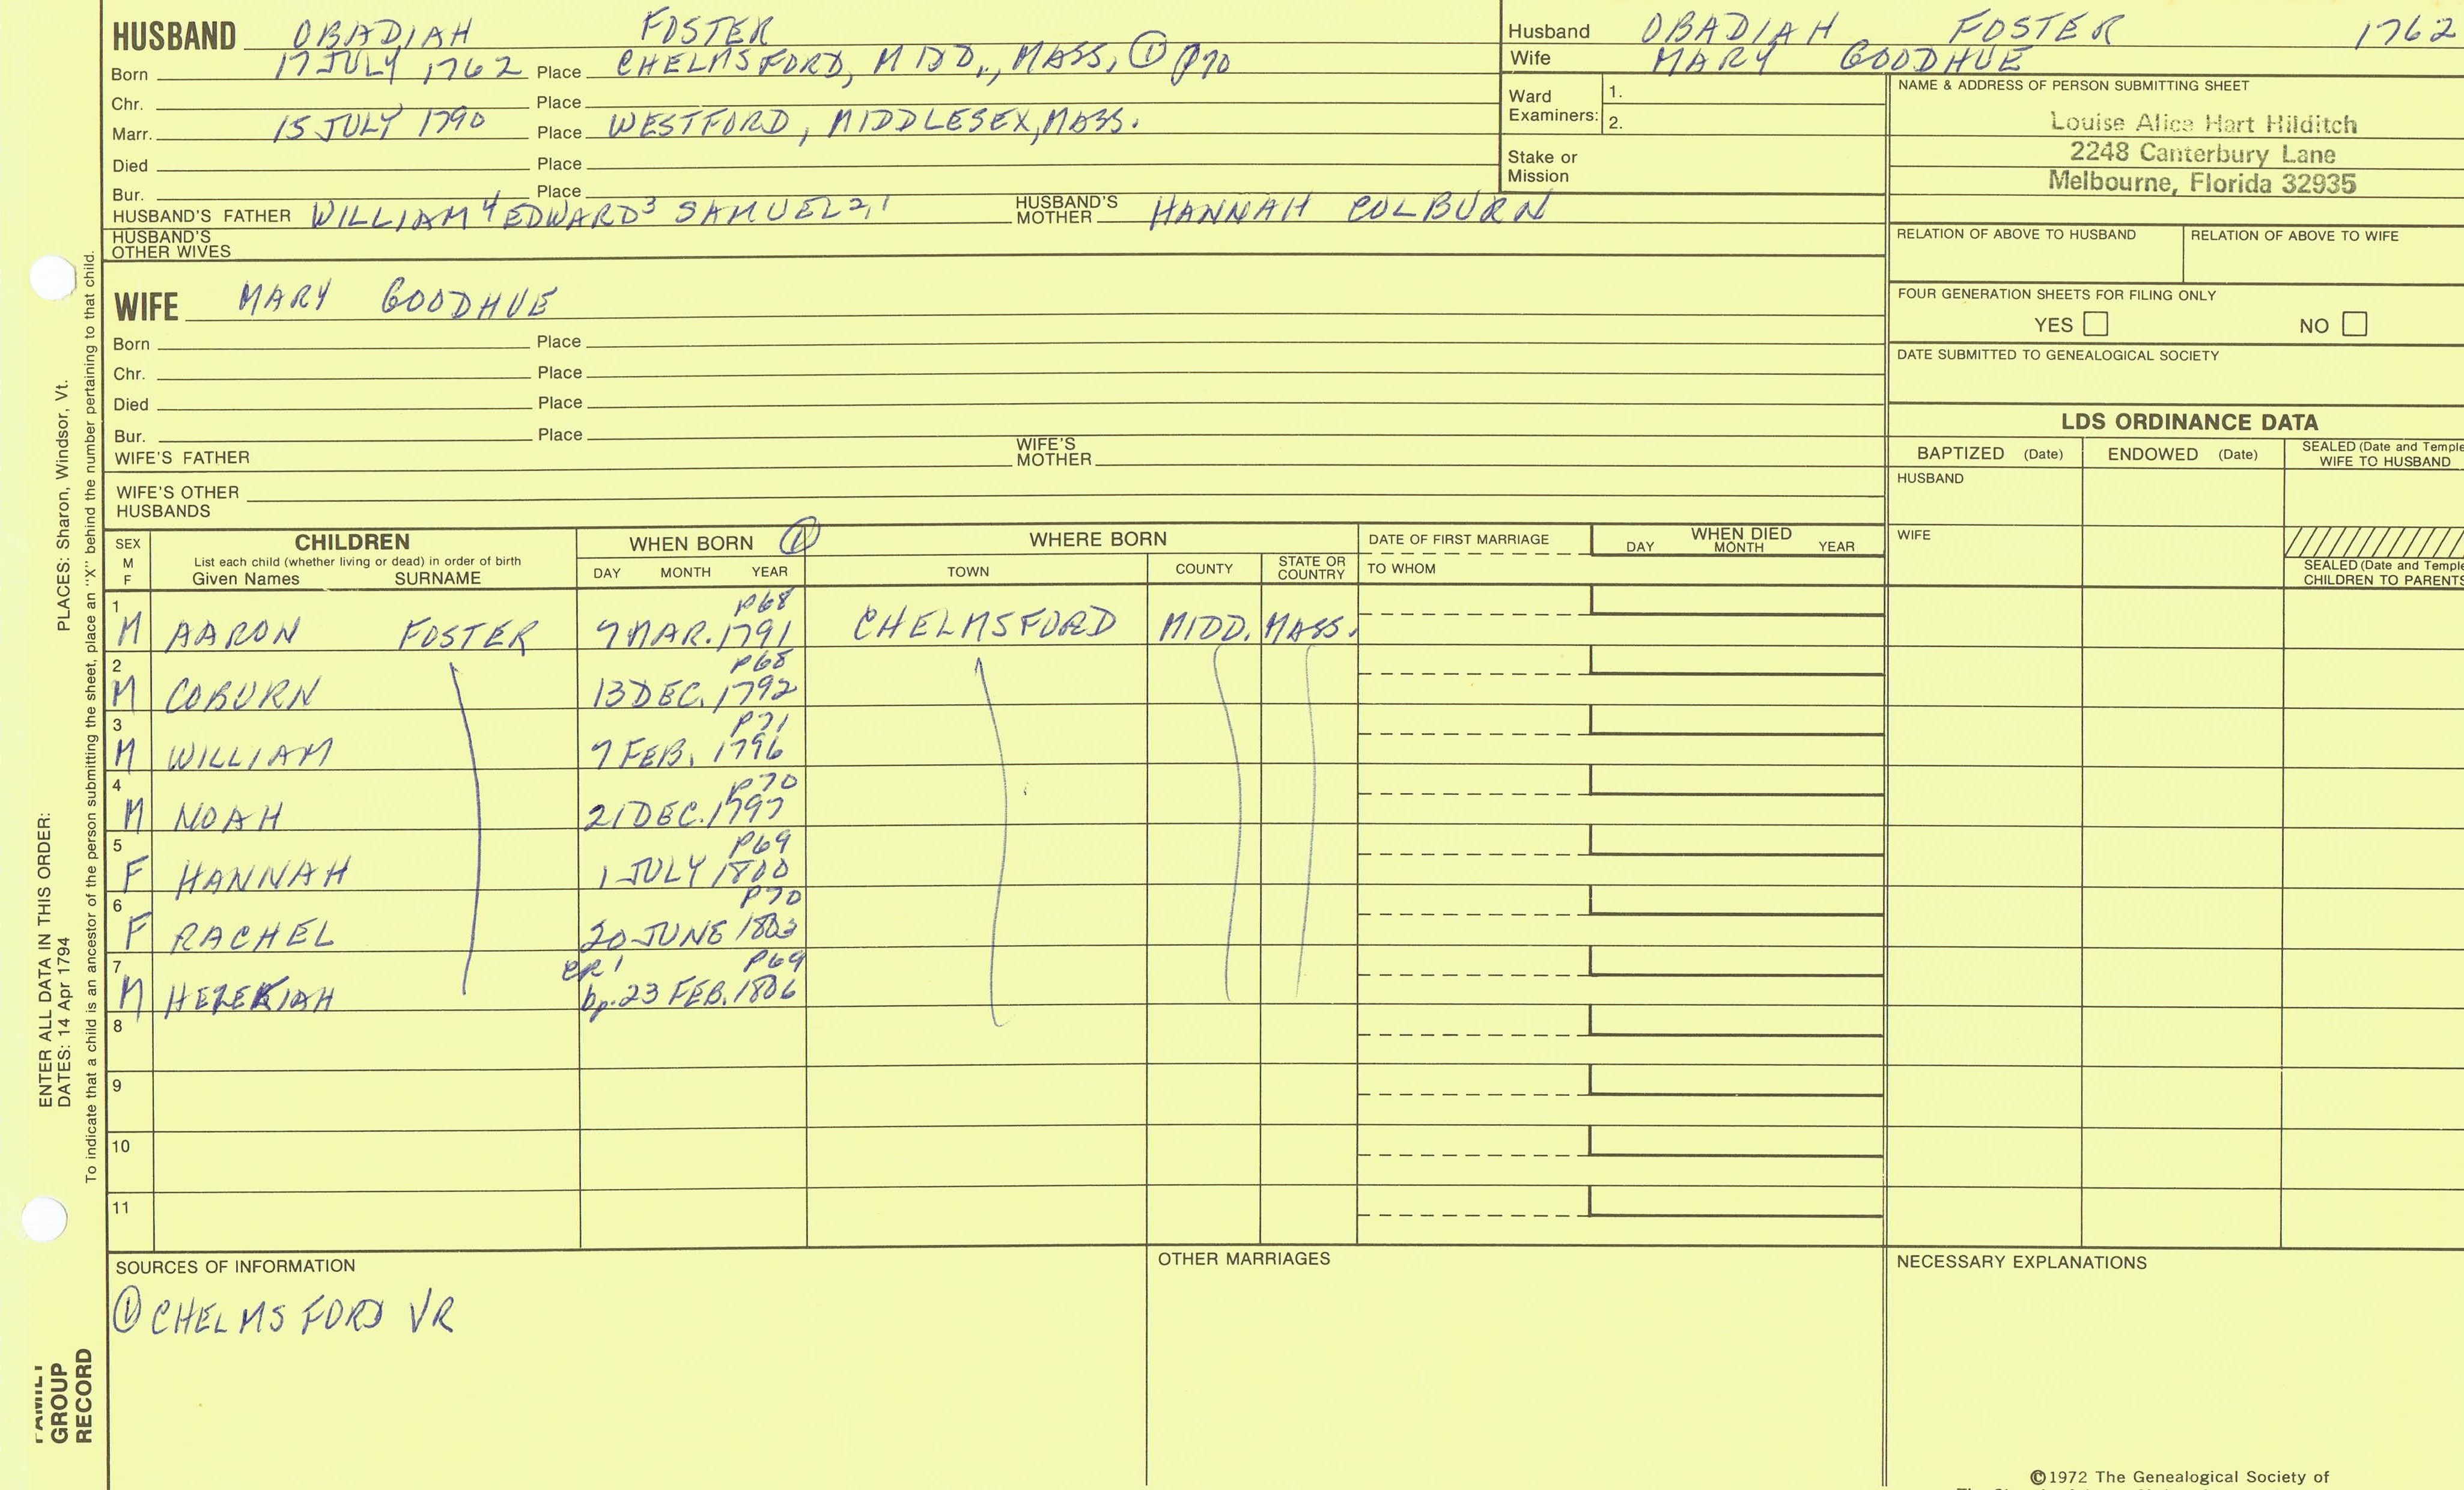 HUSBAND OBADIAH FOSTER
Born 17 JULY 1762 Place CHELMSFORD, MIDD., MASS. ① p70
Chr. Place
Marr. 15 JULY 1790 Place WESTFORD, MIDDLESEX, MASS.
Died Place
Bur. Place
HUSBAND'S FATHER WILLIAM⁴ EDWARD³ SAMUEL²,¹ HUSBAND'S MOTHER HANNAH COLBURN
HUSBAND'S OTHER WIVES
WIFE MARY GOODHUE
Born Place
Chr. Place
Died Place
Bur. Place
WIFE'S FATHER WIFE'S MOTHER
WIFE'S OTHER HUSBANDS
Husband OBADIAH FOSTER 1762
Wife MARY GOODHUE
Ward Examiners: 1.
2.
Stake or Mission
NAME & ADDRESS OF PERSON SUBMITTING SHEET
Louise Alice Hart Hilditch
2248 Canterbury Lane
Melbourne, Florida 32935
RELATION OF ABOVE TO HUSBAND RELATION OF ABOVE TO WIFE
FOUR GENERATION SHEETS FOR FILING ONLY
YES NO
DATE SUBMITTED TO GENEALOGICAL SOCIETY
LDS ORDINANCE DATA
BAPTIZED (Date) ENDOWED (Date) SEALED (Date and Temple
WIFE TO HUSBAND
HUSBAND
WIFE
SEALED (Date and Temple
CHILDREN TO PARENTS
SEX M F CHILDREN WHEN BORN ① WHERE BORN DATE OF FIRST MARRIAGE WHEN DIED
List each child (whether living or dead) in order of birth
Given Names SURNAME DAY MONTH YEAR TOWN COUNTY STATE OR COUNTRY TO WHOM DAY MONTH YEAR
1 P68
M AARON FOSTER 7 MAR. 1791 CHELMSFORD MIDD. MASS.
2 P68
M COBURN 13 DEC. 1792
3 P71
M WILLIAM 7 FEB. 1796
4 P70
M NOAH 21 DEC. 1797
5 P69
F HANNAH 1 JULY 1800
6 P70
F RACHEL 20 JUNE 1803
7 CR1 P69
M HEZEKIAH bp. 23 FEB. 1806
8
9
10
11
SOURCES OF INFORMATION
① CHELMSFORD VR
OTHER MARRIAGES
NECESSARY EXPLANATIONS
©1972 The Genealogical Society of
ENTER ALL DATA IN THIS ORDER:
DATES: 14 Apr 1794 PLACES: Sharon, Windsor, Vt.
To indicate that a child is an ancestor of the person submitting the sheet, place an "X" behind the number pertaining to that child.
FAMILY
GROUP
RECORD